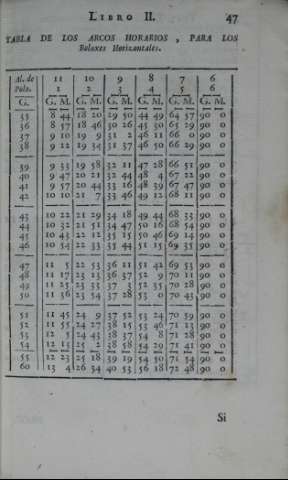 LIBRO II. 47
TABLA DE LOS ARCOS HORARIOS, PARA LOS
Reloxes Horizontales.
Al. de 11 10 9 8 7 6
Polo. 1 2 3 4 5 6
G. G. M. G. M. G. M. G. M. G. M. G. M.
35 8 44 18 20 29 50 44 49 64 57 90 0
36 8 57 18 46 30 26 45 30 65 29 90 0
37 9 10 19 9 31 2 46 11 66 0 90 0
38 9 22 19 34 31 37 46 50 66 29 90 0
39 9 33 19 58 32 11 47 28 66 51 90 0
40 9 47 20 21 32 44 48 4 67 22 90 0
41 9 57 20 44 33 16 48 39 67 47 90 0
42 10 10 21 7 33 46 49 12 68 11 90 0
43 10 22 21 29 34 18 49 44 68 33 90 0
44 10 32 21 51 34 47 50 16 68 54 90 0
45 10 43 22 12 35 15 50 46 69 14 90 0
46 10 54 22 33 35 44 51 15 69 35 90 0
47 11 5 22 53 36 11 51 42 69 53 90 0
48 11 17 23 13 36 37 52 9 70 11 90 0
49 11 25 23 33 37 3 52 35 70 28 90 0
50 11 36 23 54 37 28 53 0 70 43 90 0
51 11 45 24 9 37 52 53 24 70 59 90 0
52 11 55 24 27 38 15 53 46 71 13 90 0
53 12 5 24 43 38 37 54 8 71 28 90 0
54 12 15 25 2 38 58 54 29 71 41 90 0
55 12 23 25 18 39 19 54 50 71 54 90 0
60 13 4 26 34 40 53 56 18 72 48 90 0
Si